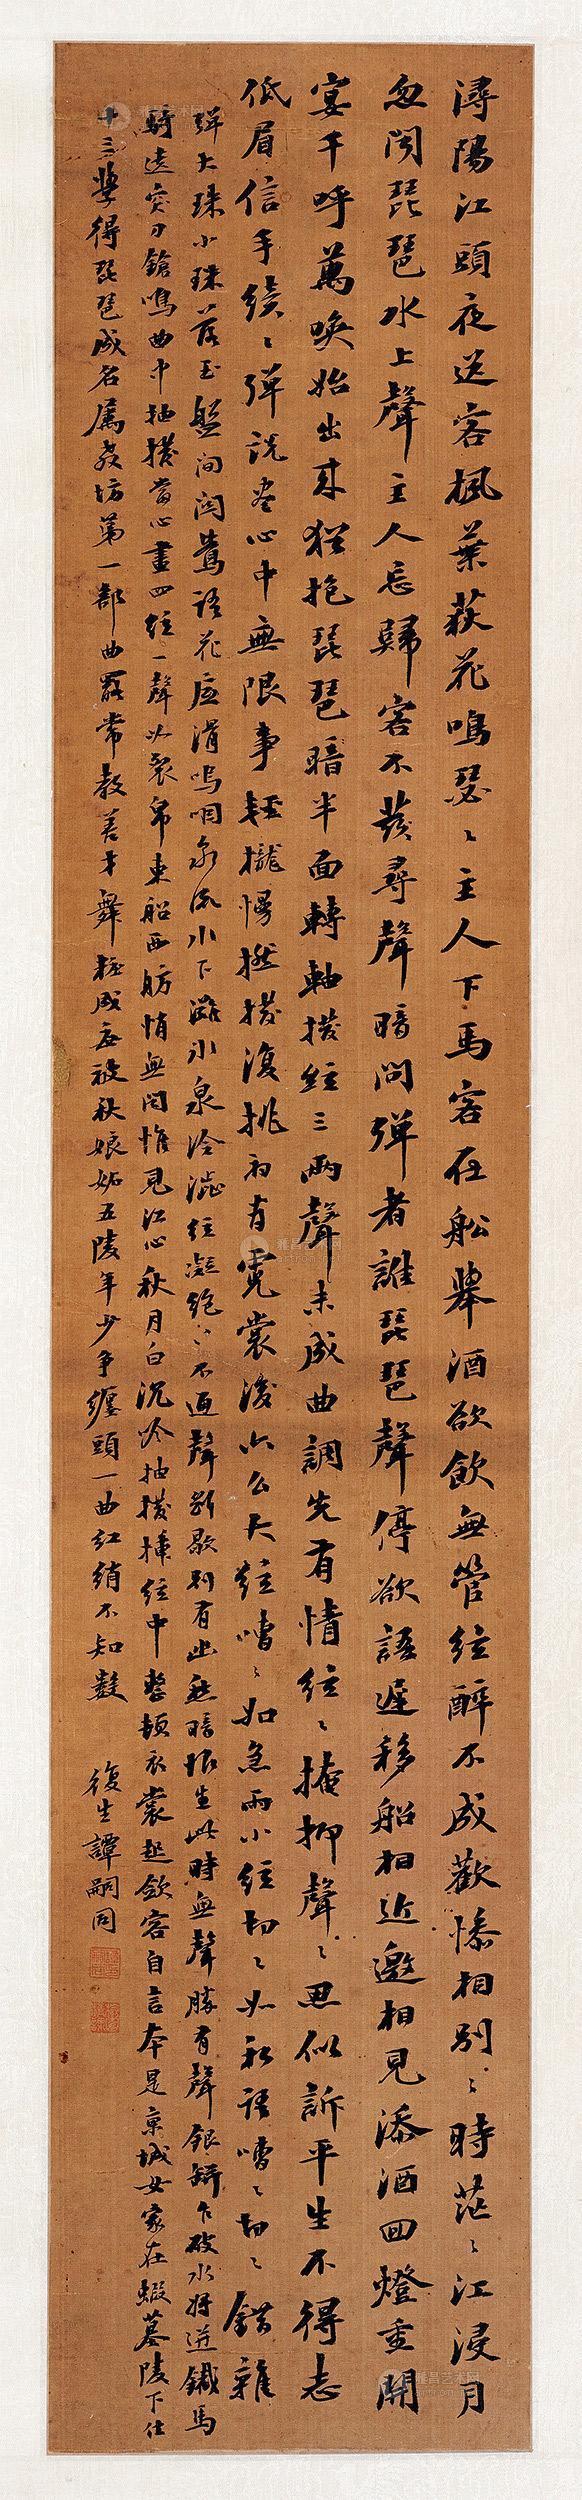 潯陽江頭夜送客楓葉荻花鳴瑟〻主人下馬客在船舉酒欲飲無管絃醉不成歡慘相別〻時茫〻江浸月
忽聞琵琶水上聲主人忘歸客不發尋聲暗問弹者誰琵琶聲停欲語遲移船相近邀相見添酒回燈重開
宴千呼萬喚始出来猶抱琵琶暗半面轉軸撥絃三兩聲未成曲調先有情絃〻掩抑聲〻思似訴平生不得志
低眉信手續〻弹説盡心中無限事輕攏慢撚撥復挑初有霓裳後六幺大絃嘈〻如急雨小絃切〻如私語嘈〻切〻錯雜
弹大珠小珠落玉盤间関鶯語花底滑嗚咽泉流水下灘水泉冷澁絃凝絶〻不通聲蹔歇別有幽愁暗恨生此時無聲勝有聲銀缾乍破水將迸鐵馬
騎遠突刀鎗鳴曲中抽撥當心畫四絃一聲如裂帛東船西舫悄無聞惟見江心秋月白沉吟抽撥插絃中整頓衣裳起斂容自言本是京城女家在蝦蟇陵下住
十三學得琵琶成名屬教坊第一部曲罷常教善才舞粧成每被秋娘妬五陵年少争纏頭一曲紅綃不知數
復生譚嗣同
雅昌艺术网